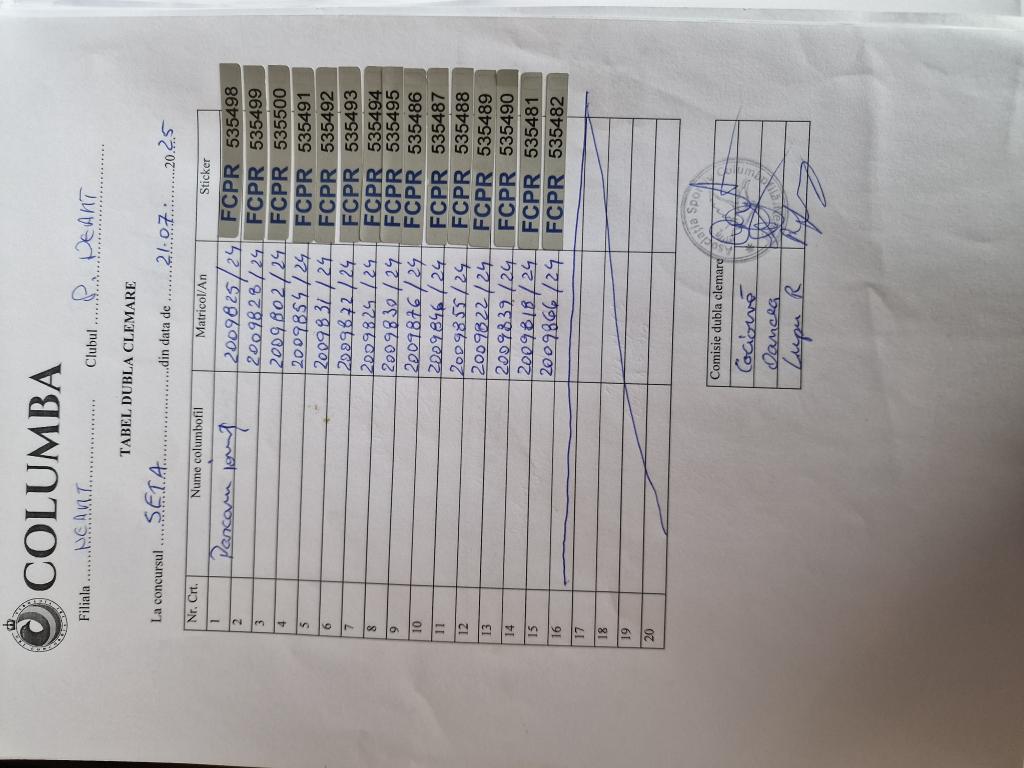 COLUMBA
Filiala NEAMT Clubul P. NEAMT
TABEL DUBLA CLEMARE
La concursul SETA din data de 21.07. 2025
Nr. Crt. Nume columbofil Matricol/An Sticker
1
2 2009825/24 FCPR 535498
3 2009828/24 FCPR 535499
4 2009802/24 FCPR 535500
5 2009854/24 FCPR 535491
6 2009831/24 FCPR 535492
7 2009877/24 FCPR 535493
8 2009824/24 FCPR 535494
9 2009830/24 FCPR 535495
10 2009876/24 FCPR 535486
11 2009846/24 FCPR 535487
12 2009855/24 FCPR 535488
13 2009822/24 FCPR 535489
14 2009839/24 FCPR 535490
15 2009818/24 FCPR 535481
16 2009866/24 FCPR 535482
17
18
19
20
Comisie dubla clemare
Dancea
Lupu R